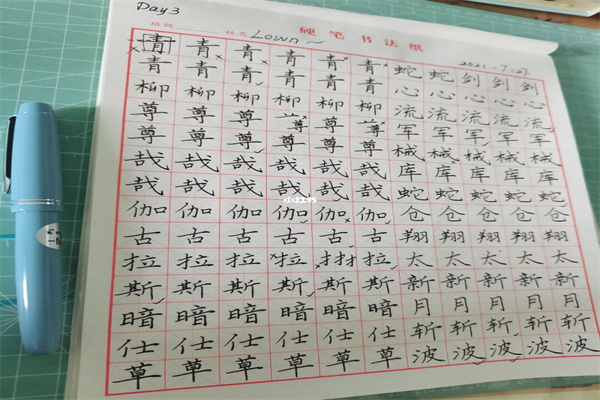 Day 3
硬笔书法纸
班级 姓名 Lown~
2021-7-27
青 青 青 青 青 青 蛇 蛇 剑 剑 剑
青 青 青 青 青 青 心 心 心 心 心
柳 柳 柳 柳 柳 柳 流 流 流 流 流
尊 尊 尊 尊 尊 尊 军 军 军 军 军
尊 尊 尊 尊 尊 尊 械 械 械 械 械
哉 哉 哉 哉 哉 哉 库 库 库 库 库
哉 哉 哉 哉 哉 哉 蛇 蛇 蛇 蛇 蛇
伽 伽 伽 伽 伽 伽 仓 仓 仓 仓 仓
古 古 古 古 古 古 翔 翔 翔 翔 翔
拉 拉 拉 拉 扌扌 拉 太 太 太 太 太
斯 斯 斯 斯 斯 斯 新 新 新 新 新
暗 暗 暗 暗 暗 暗 月 月 月 月 月
仕 仕 仕 仕 仕 仕 斩 斩 斩 斩 斩
草 草 草 草 草 草 波 波 波 波 波
小红书